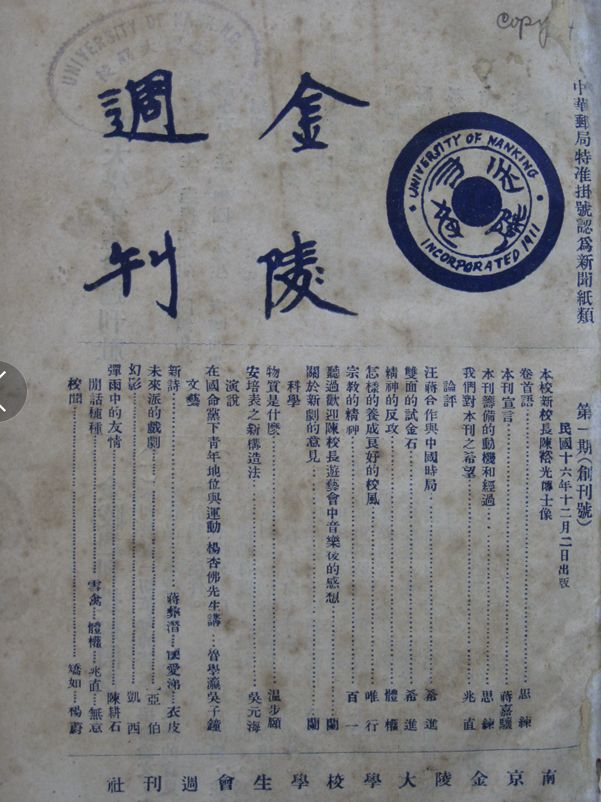 copy
UNIVERSITY OF NANKING
金陵
週刊
UNIVERSITY OF NANKING
INCORPORATED 1911
中華郵局特准掛號認爲新聞紙類
第一期(創刊號)
民國十六年十二月二日出版
本校新校長陳裕光博士像
卷首語……思練
本刊宣言……蔣嘉驤
本刊籌備的動機和經過……思練
我們對本刊之希望……兆直
論評
汪蔣合作與中國時局……希進
雙面的試金石……希進
精神的反攻……體權
怎樣的養成良好的校風……唯行
宗教的精神……百一
聽過歡迎陳校長遊藝會中音樂後的感想……蘭
關於新劇的意見……蘭
科學
物質是什麼……溫步頤
安培表之新構造法……吳元海
演說
在國命黨下青年地位與運動 楊杏佛先生講……魯學瀛吳子鐘
文藝
新詩……衣皮
未來派的戲劇……亞伯
幻影……凱西
彈雨中的友情……陳耕石
閒話種種……雪禽……體權……兆直……無意
校聞……矯如……楊蔚
南京金陵大學校學生會週刊社